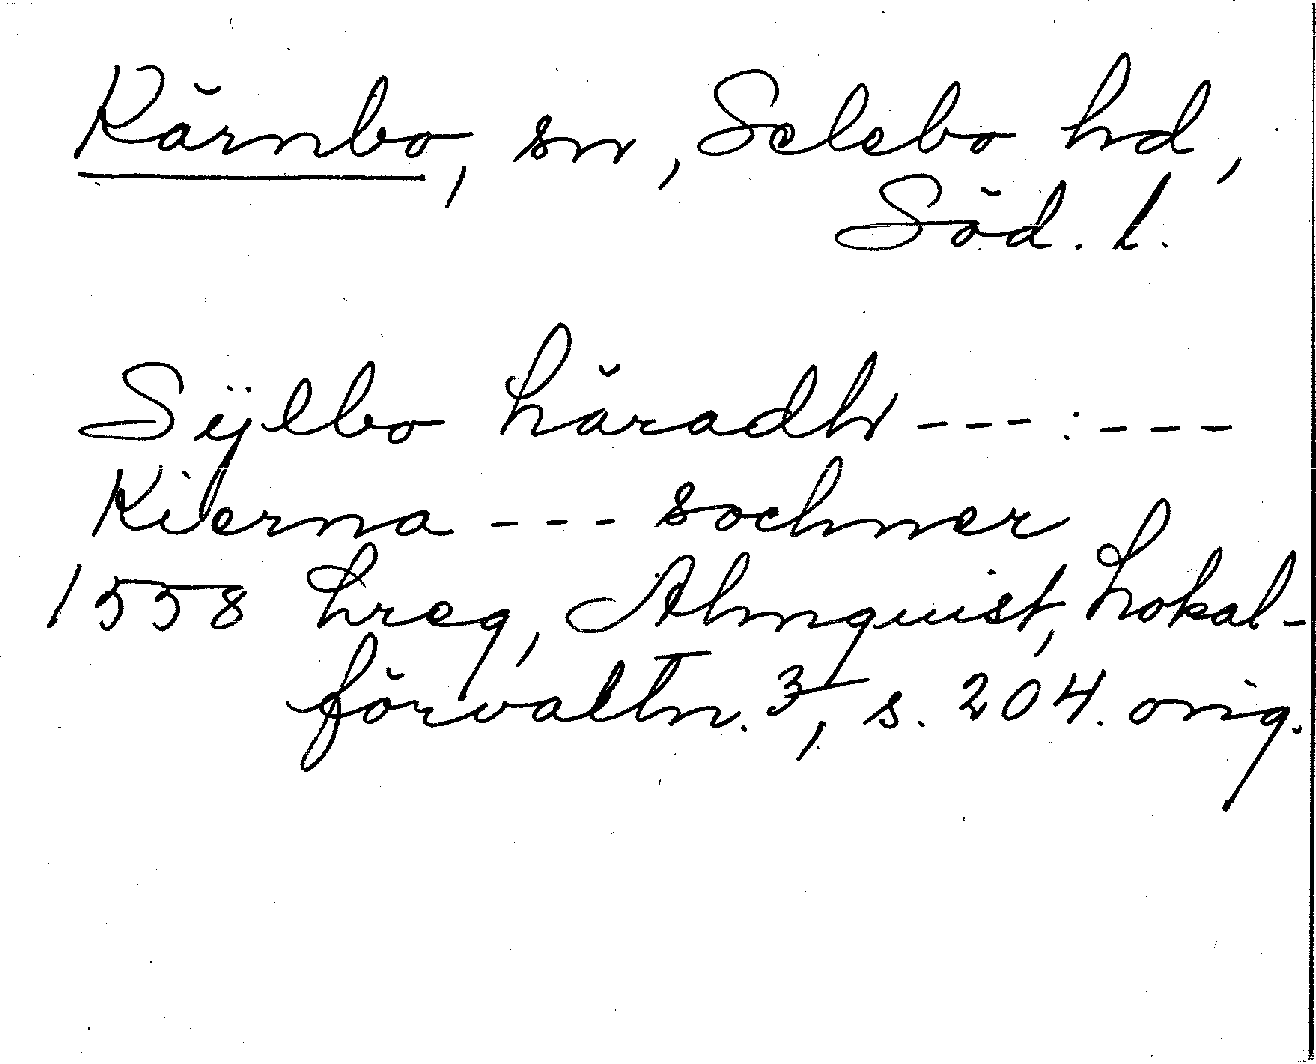 Kärnbo, sn, Selebo hd,
Söd. l.
Sÿlbo häradh ---:---
Kierna --- sochner
1558 hreg, Almquist, Lokal-
förvaltn. 3, s. 204. orig.